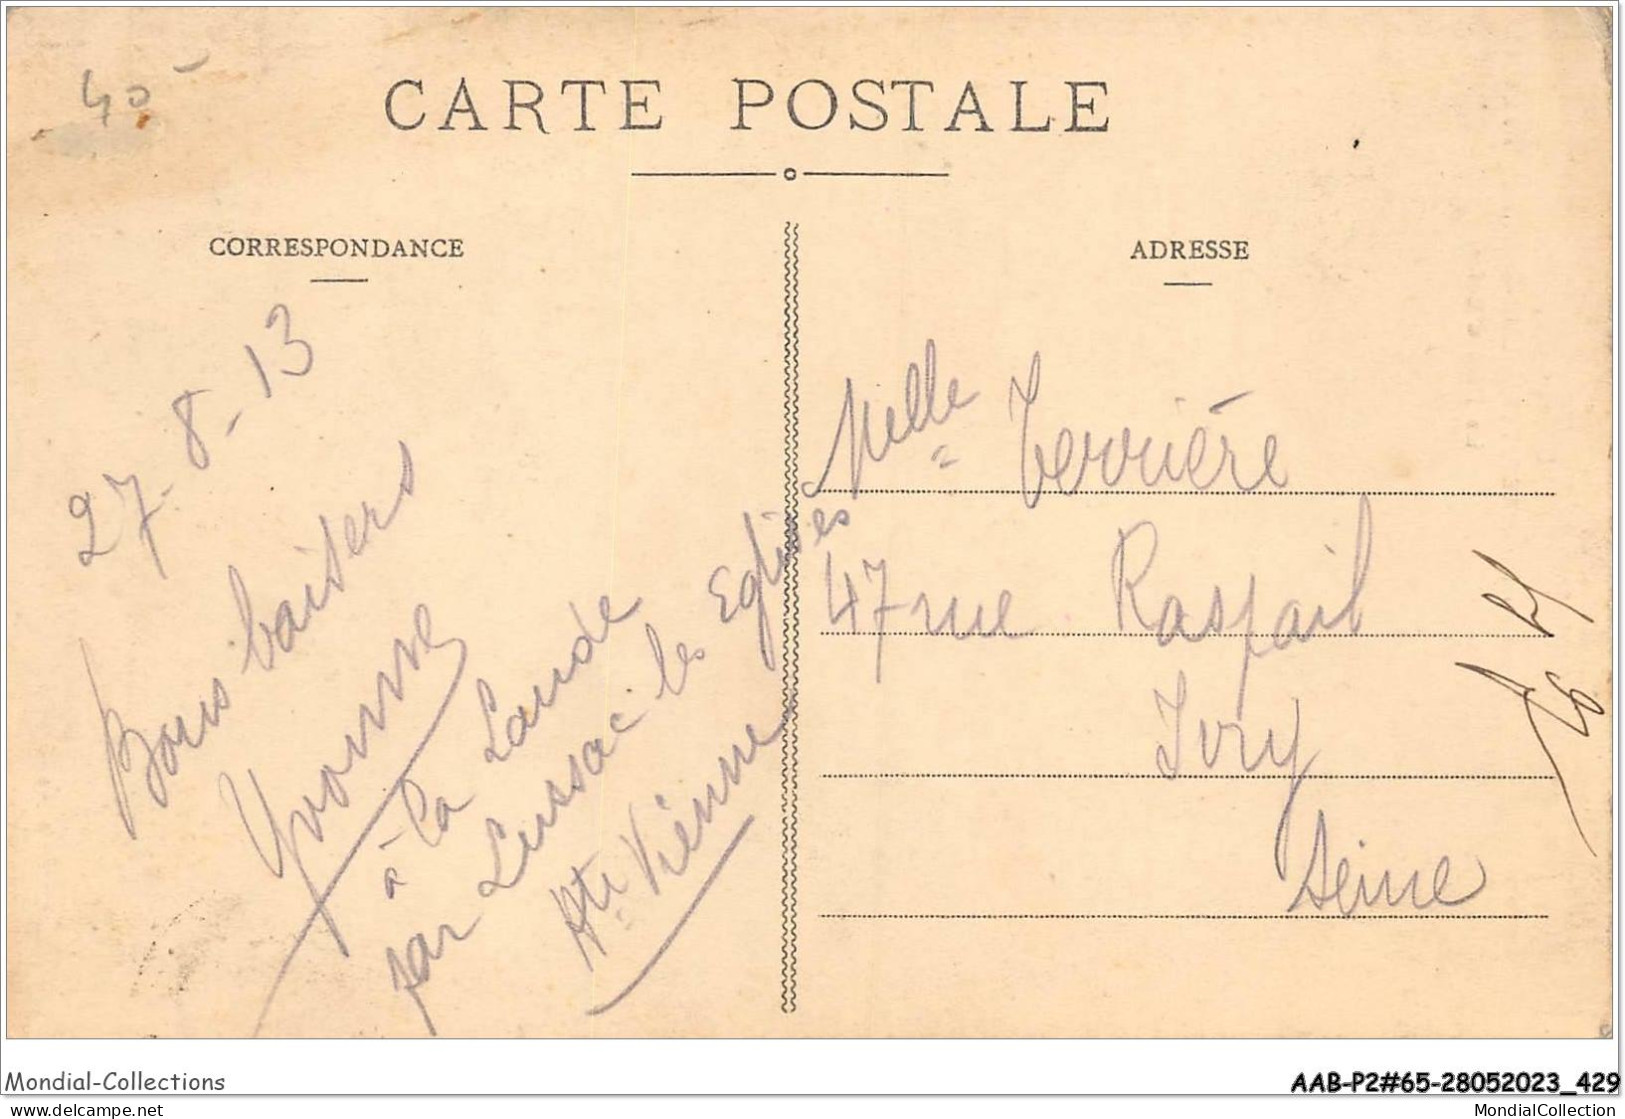 40 -
CARTE POSTALE
CORRESPONDANCE
27-8-13
Bons baisers
Yvonne
à la Lande
par Lussac les Eglises
Hte Vienne
ADRESSE
Melle Terrière
47 rue Raspail
Ivry
Seine
Mondial-Collections
AAB-P2#65-28052023_429
www.delcampe.net
MondialCollection